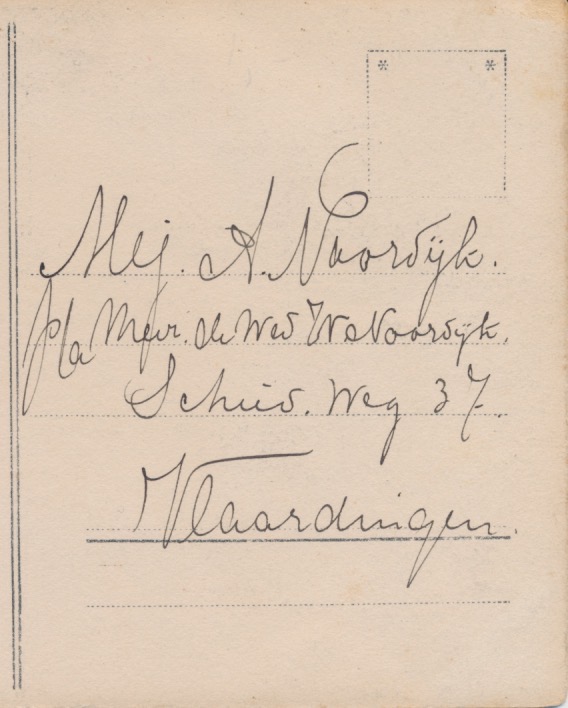 Mej. A. Noordijk.
p/a Mevr. de Wed W Noordijk.
Schied. Weg 37.
Vlaardingen.